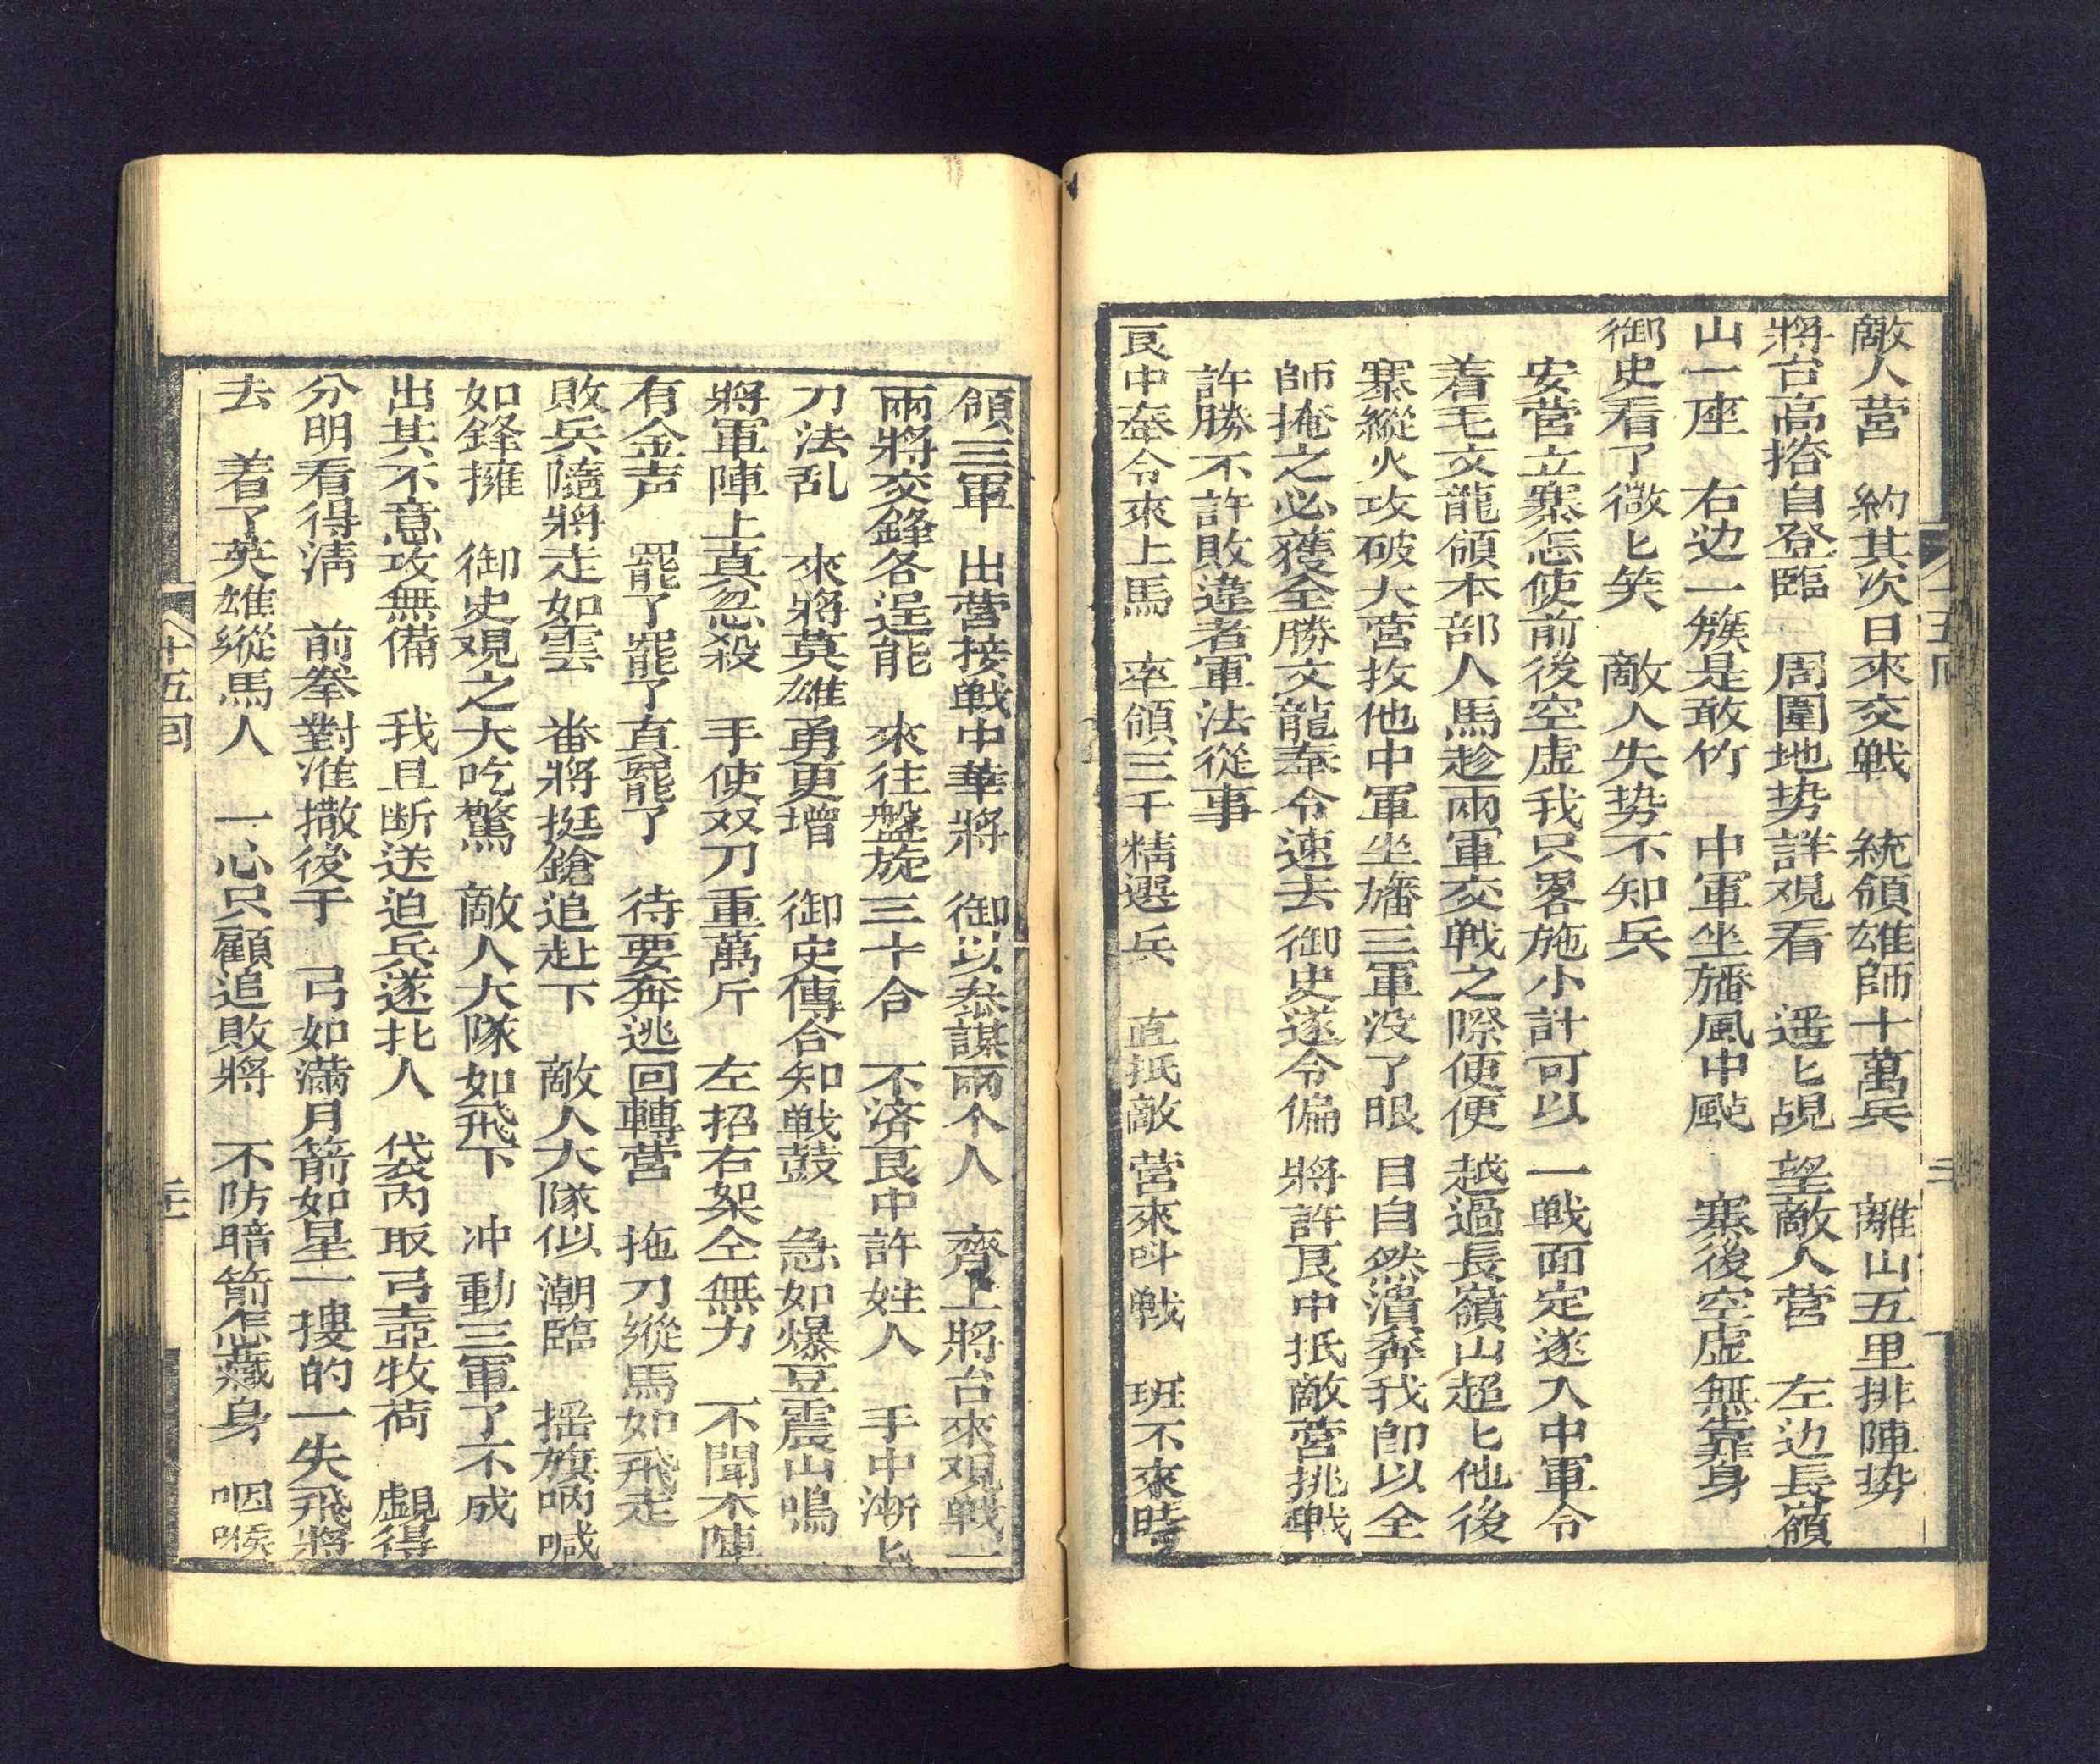 敵人营　約其次日來交戦　統領雄師十萬兵　離山五里排陣势
將台高搭自登臨　周圍地势詳观看　遥匕覘望敵人营　左边長嶺
山一座　右边一簇是敢竹　中軍坐旙風中颭　寨後空虚無靠身
御史看了微匕笑　敵人失势不知兵
安营立寨怎使前後空虚我只畧施小計可以一戦面定遂入中軍令
着毛文龍領本部人馬趁兩軍交戦之際便便越過長嶺山超匕他後
寨縱火攻破大营扳他中軍坐旙三軍没了眼目自然潰奔我即以全
師掩之必獲全勝文龍奉令速去御史遂令偏將許艮中抵敵营挑戦
許勝不許敗違者軍法從事
艮中奉令來上馬　率領三千精選兵　直抵敵营來呌戦　班不來時
十五回　三
領三軍　出营接戦中華將　御以叅謀兩个人　齊上將台來观戦一
兩將交鋒各逞能　來往盤旋三十合　不济艮中許姓人　手中漸匕
刀法乱　來將英雄勇更增　御史傳合知戦鼓　急如爆豆震山鳴
將軍陣上真忽殺　手使双刀重萬斤　左招右架全無力　不聞本陣
有金声　罷了罷了直罷了　待要奔逃回轉营　拖刀縱馬如飛走
敗兵隨將走如雲　畨將挺鎗追赴下　敵人大隊似潮臨　揺旗吶喊
如鋒擁　御史观之大吃驚　敵人大隊如飛下　冲動三軍了不成
出其不意攻無備　我且断送追兵遂北人　袋内取弓壺牧荷　覷得
分明看得淸　前拳對准撒後手　弓如滿月箭如星一摟的一失飛將
去　着了英雄縱馬人　一心只顧追敗將　不防暗箭怎藏身　咽喉
十五回　三